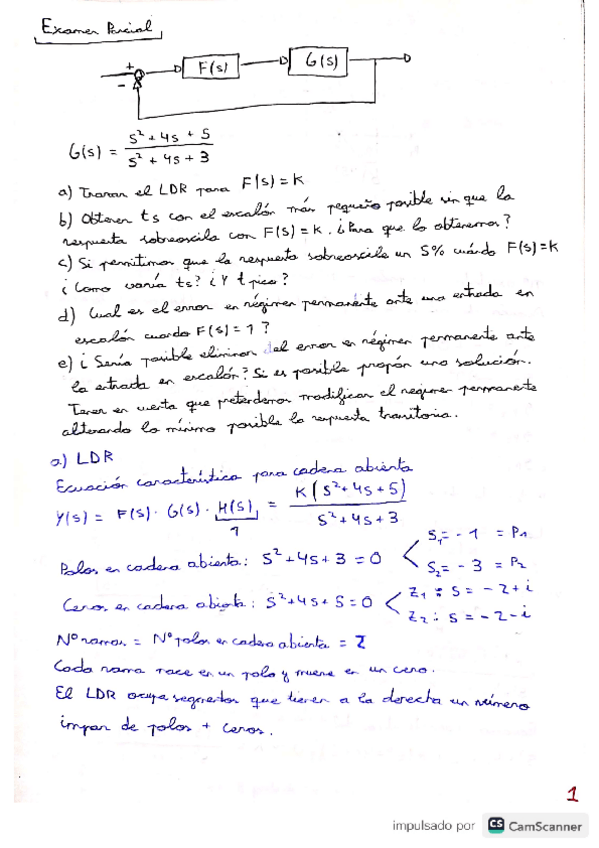 Examen Parcial
+
-
F(s)
G(s)
G(s) = s² + 4s + 5 / s² + 4s + 3
a) Trazar el LDR para F(s) = K
b) Obtener ts con el escalón más pequeño posible sin que la
respuesta sobreoscile con F(s) = K. ¿Para que lo obtenemos?
c) Si permitimos que la respuesta sobreoscile un 5% cuándo F(s)=K
¿Como varía ts? ¿Y t pico?
d) Cual es el error en régimen permanente ante una entrada en
escalón cuando F(s) = 1?
e) ¿Sería posible eliminar del error en régimen permanente ante
la entrada en escalón? Si es posible propón una solución.
Tener en cuenta que pretendemos modificar el regimen permanente
alterando lo mínimo posible la respuesta transitoria.
a) LDR
Ecuación característica para cadena abierta
Y(s) = F(s) · G(s) · H(s) = K(s² + 4s + 5) / s² + 4s + 3
1
Polos en cadena abierta: s² + 4s + 3 = 0 S₁ = - 1 = P₁
S₂ = - 3 = P₂
Ceros en cadena abierta: s² + 4s + 5 = 0 Z₁ : s = - 2 + i
Z₂ : s = - 2 - i
Nº ramas = Nº polos en cadena abierta = 2
Cada rama nace en un polo y muere en un cero.
El LDR ocupa segmentos que tienen a la derecha un número
impar de polos + ceros.
1
impulsado por CS CamScanner